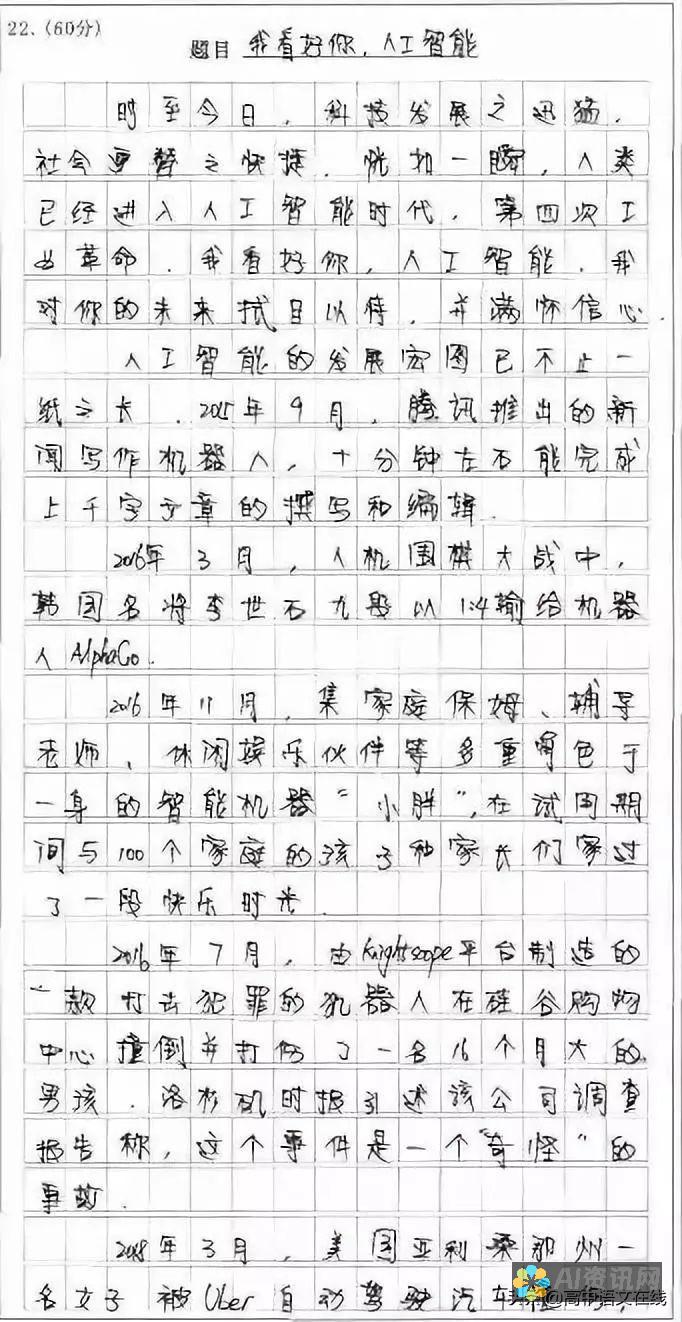 22、(60分)
题目 我看好你,人工智能
时至今日,科技发展之迅猛,
社会更替之快捷,恍如一瞬,人类
已经进入人工智能时代,第四次工
业革命.我看好你,人工智能,我
对你的未来拭目以待,并满怀信心.
人工智能的发展宏图已不止一
纸之长.2015年9月,腾讯推出的新
闻写作机器人,十分钟左右能完成
上千字文章的撰写和编辑.
2016年3月,人机围棋大战中,
韩国名将李世石九段以1:4输给机器
人AlphaGo.
2016年11月,集家庭保姆、辅导
老师、休闲娱乐伙伴等多重角色于
一身的智能机器“小胖”,在试用期
间与100个家庭的孩子和家长们家过
了一段快乐时光.
2016年7月,由Knightscope平台制造的
一款打击犯罪的机器人在硅谷购物
中心撞倒并打伤了一名16个月大的
男孩.洛杉矶时报引述该公司调查
报告称,这个事件是一个“奇怪”的
事故.
2018年3月,美国亚利桑那州一
名女子被Uber自动驾驶汽车
AI资讯网
@高中语文在线